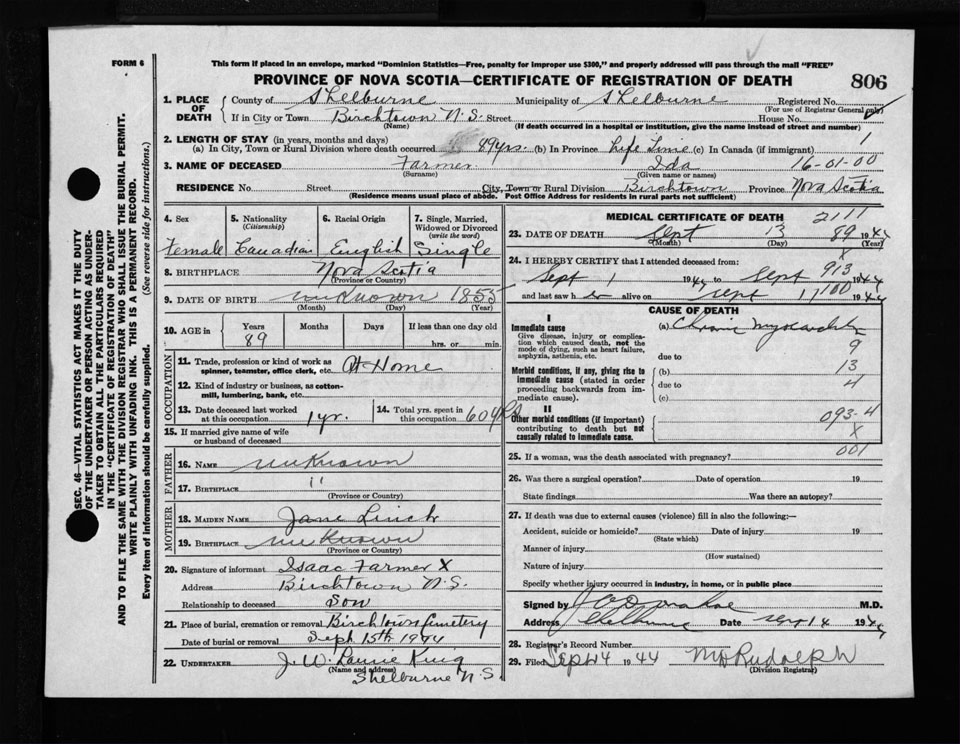 FORM 6
This form if placed in an envelope, marked "Dominion Statistics—Free, penalty for improper use $300," and properly addressed will pass through the mail "FREE"
PROVINCE OF NOVA SCOTIA—CERTIFICATE OF REGISTRATION OF DEATH
806
1. PLACE OF DEATH
County of Shelburne Municipality of Shelburne Registered No.
(For use of Registrar General only)
If in City or Town Birchtown N.S. Street House No.
(Name) (If death occurred in a hospital or institution, give the name instead of street and number)
2. LENGTH OF STAY (in years, months and days)
(a) In City, Town or Rural Division where death occurred 89 yrs. (b) In Province Life Time (c) In Canada (if immigrant) 1
3. NAME OF DECEASED Farmer Ida 16-01-00
(Surname) (Given name or names)
RESIDENCE No. Street City, Town or Rural Division Birchtown Province Nova Scotia
(Residence means usual place of abode. Post Office Address for residents in rural parts not sufficient)
4. Sex
Female
5. Nationality
(Citizenship)
Canadian
6. Racial Origin
English
7. Single, Married, Widowed or Divorced
(write the word)
Single
8. BIRTHPLACE Nova Scotia
(Province or Country)
9. DATE OF BIRTH unknown 1855
(Month) (Day) (Year)
10. AGE in
Years Months Days If less than one day old
89 hrs. or min.
OCCUPATION
11. Trade, profession or kind of work as spinner, teamster, office clerk, etc. At Home
12. Kind of industry or business, as cotton-mill, lumbering, bank, etc.
13. Date deceased last worked at this occupation 1 yr.
14. Total yrs. spent in this occupation 60 yrs
15. If married give name of wife or husband of deceased
FATHER
16. NAME unknown
17. BIRTHPLACE "
(Province or Country)
MOTHER
18. MAIDEN NAME Jane Linck
19. BIRTHPLACE unknown
(Province or Country)
20. Signature of informant Isaac Farmer X
Address Birchtown N.S.
Relationship to deceased Son
21. Place of burial, cremation or removal Birchtown Cemetery
Date of burial or removal Sept 15th 1944
22. UNDERTAKER J. W.
(Name and address)
Shelburne N.S.
MEDICAL CERTIFICATE OF DEATH
2111
23. DATE OF DEATH Sept 13 89 1944
(Month) (Day) (Year)
X
24. I HEREBY CERTIFY that I attended deceased from:
913
Sept 1 1944 to Sept 1944
and last saw her alive on Sept 1944
CAUSE OF DEATH
I
Immediate cause
Give disease, injury or complication which caused death, not the mode of dying, such as heart failure, asphyxia, asthenia, etc.
(a) Chronic Myocarditis
9
due to
13
Morbid conditions, if any, giving rise to immediate cause (stated in order proceeding backwards from immediate cause).
(b)
due to
4
(c)
II
Other morbid conditions (if important) contributing to death but not causally related to immediate cause.
093-4
X
001
25. If a woman, was the death associated with pregnancy?
26. Was there a surgical operation? Date of operation 19
State findings Was there an autopsy?
27. If death was due to external causes (violence) fill in also the following:—
Accident, suicide or homicide? Date of injury 19
(State which)
Manner of injury
(How sustained)
Nature of injury
Specify whether injury occurred in industry, in home, or in public place
Signed by M.D.
Address Shelburne Date Sept 14 1944
28. Registrar's Record Number
29. Filed Sept 14 1944 Rudolph
(Division Registrar)
SEC. 46—VITAL STATISTICS ACT MAKES IT THE DUTY
OF THE UNDERTAKER OR PERSON ACTING AS UNDERTAKER
TO OBTAIN ALL THE PARTICULARS REQUIRED
IN THE "CERTIFICATE OF REGISTRATION OF DEATH"
AND TO FILE THE SAME WITH THE DIVISION REGISTRAR WHO SHALL ISSUE THE BURIAL PERMIT.
WRITE PLAINLY WITH UNFADING INK. THIS IS A PERMANENT RECORD.
Every item of information should be carefully supplied. (See reverse side for instructions.)